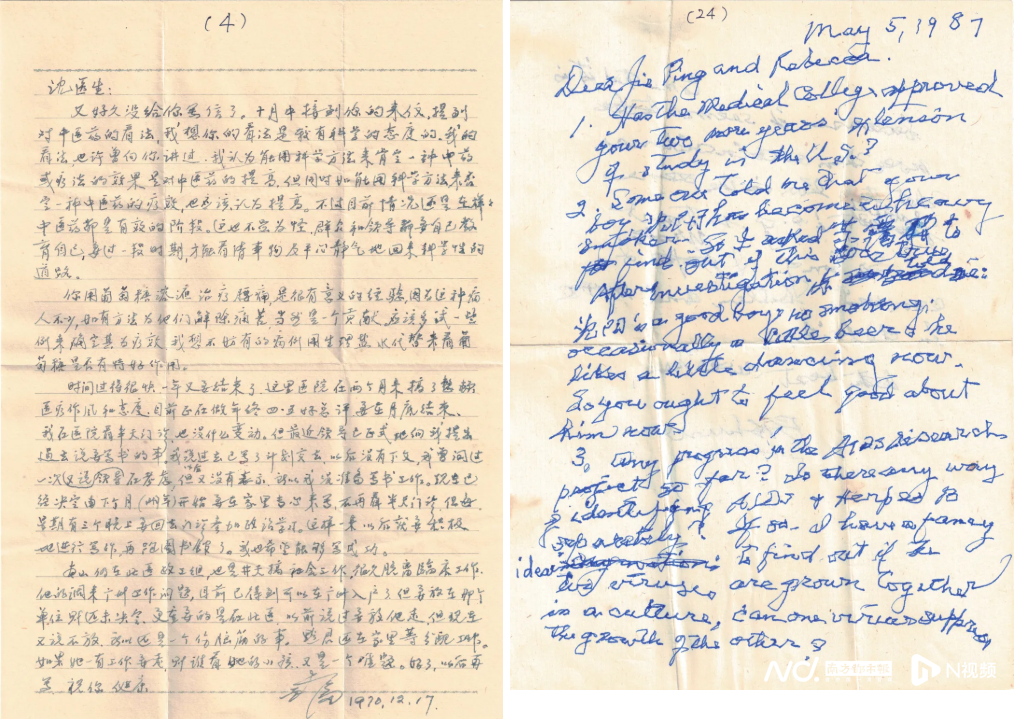 (4)
沈医生：
又好久没给你写信了。十月中接到你的来信，提到
对中医药的看法，我想你的看法是最有科学的态度的。我的
看法，也许曾向你讲过，我认为能用科学方法来肯定一种中药
或疗法的效果是对中医药的提高，但同时如能用科学方法来否
定一种中医药的疗效也应该认为提高。不过目前情况还是在样样
中医药都是有效的阶段。这也不要为怪，群众和领导都要自己教
育自己，要过一段时期才能看清事物及平心静气地回来科学性的
道路。
你用葡萄糖 治疗腰痛是很有意义的经验，因为这种病
人不少，如有方法为他们解除痛苦当然是一个贡献，应该多试一些
例来确定其为疗效。我想不妨有的病例用生理盐水代替来看葡
萄糖是否有特好作用。
时间过得很快一年又要结束了。这里医院在两个月来搞了整顿
医疗作风和态度，目前正在做年终四 好总评要在月底结束。
我在医院最半天门诊，也没什么变动。但最近领导已正式地向我提出
过去说要写书的事，我说过去已写了计划交去，以后没有下文，我曾问过
一次又说领导在考虑，但又没有表示，所以我没准备写书工作。现在已
经决定由下个月(明年)开始要在家里专心来写，不再最半天门诊，但每
星期有三个晚上要回去门诊参加政治学习。这样一来以后就要积极
地进行写作，再跑图书馆了。我也希望能够写成功。
 们在此医政工组，也是
他的调来广州工作问题，目前已得到可以在广州入户了，但要放在那个
单位 还未决定。 以前说过要放他走，但现在
又说不放，所以还是一个伤脑筋的事。 还在家里等分配工作。
如果她一有工作要走，那谁看她的小孩，又是一个难题。好了，以后再
写 祝你 健康
1970.12.17.
(24)
May 5, 1987
Dear Jie Ping and Rebecca.
1. Has the Medical College approved
your two more years' extension
of study in the U.S.?
2. Some one told me that your
boy has become a heavy
smoker. So I asked to
find out if this
After investigation
is a good boy: no smoking;
occasionally a beer & he
likes a little dancing now.
So you ought to feel good about
him now!
3. Any progress in the Aids research
project so far? Is there any way
of identifying AIDS & Herpes B
separately? If so. I have a fancy
idea to find out if
two viruses are grown together
in a culture, can one virus suppress
the growth of the other?
南方都市报
N视频